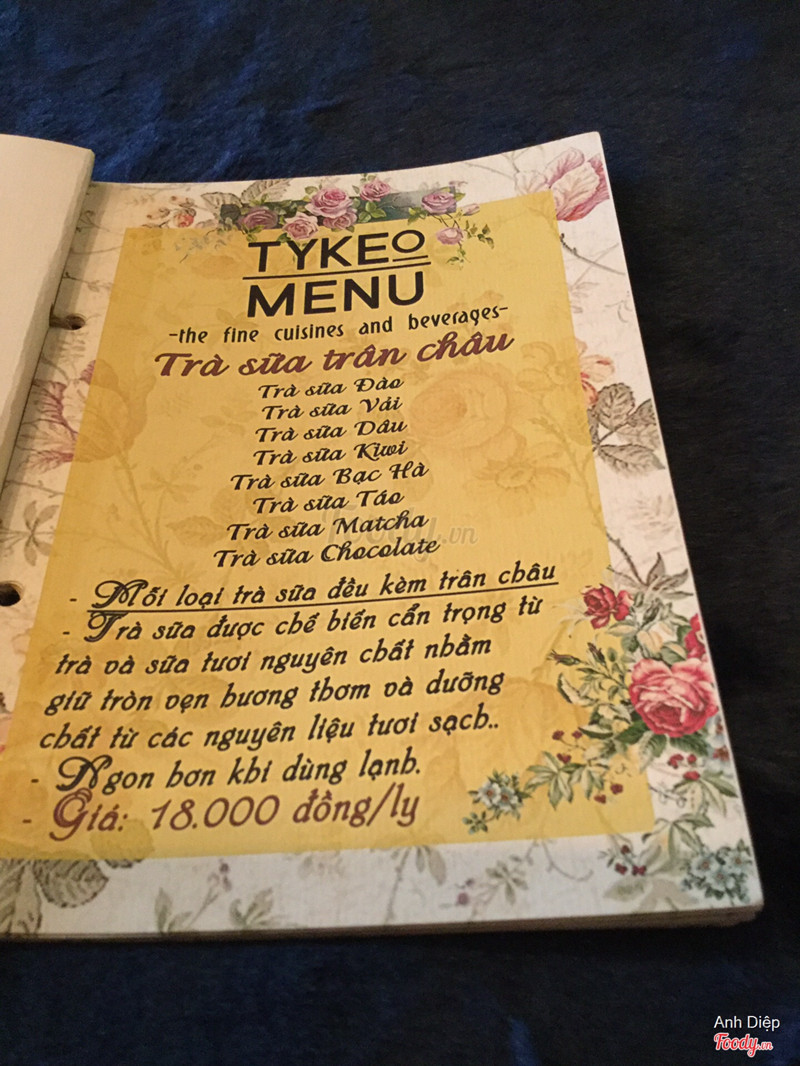 TYKEO
MENU
-the fine cuisines and beverages-
Trà sữa trân châu
Trà sữa Đào
Trà sữa Vải
Trà sữa Dâu
Trà sữa Kiwi
Trà sữa Bạc Hà
Trà sữa Táo
Trà sữa Matcha
Trà sữa Chocolate
- Mỗi loại trà sữa đều kèm trân châu
- Trà sữa được chế biến cẩn trọng từ
trà và sữa tươi nguyên chất nhằm
giữ tròn vẹn hương thơm và dưỡng
chất từ các nguyên liệu tươi sạch..
- Ngon hơn khi dùng lạnh.
- Giá: 18.000 đồng/ly
Foody.vn
Anh Diệp
Foody.vn